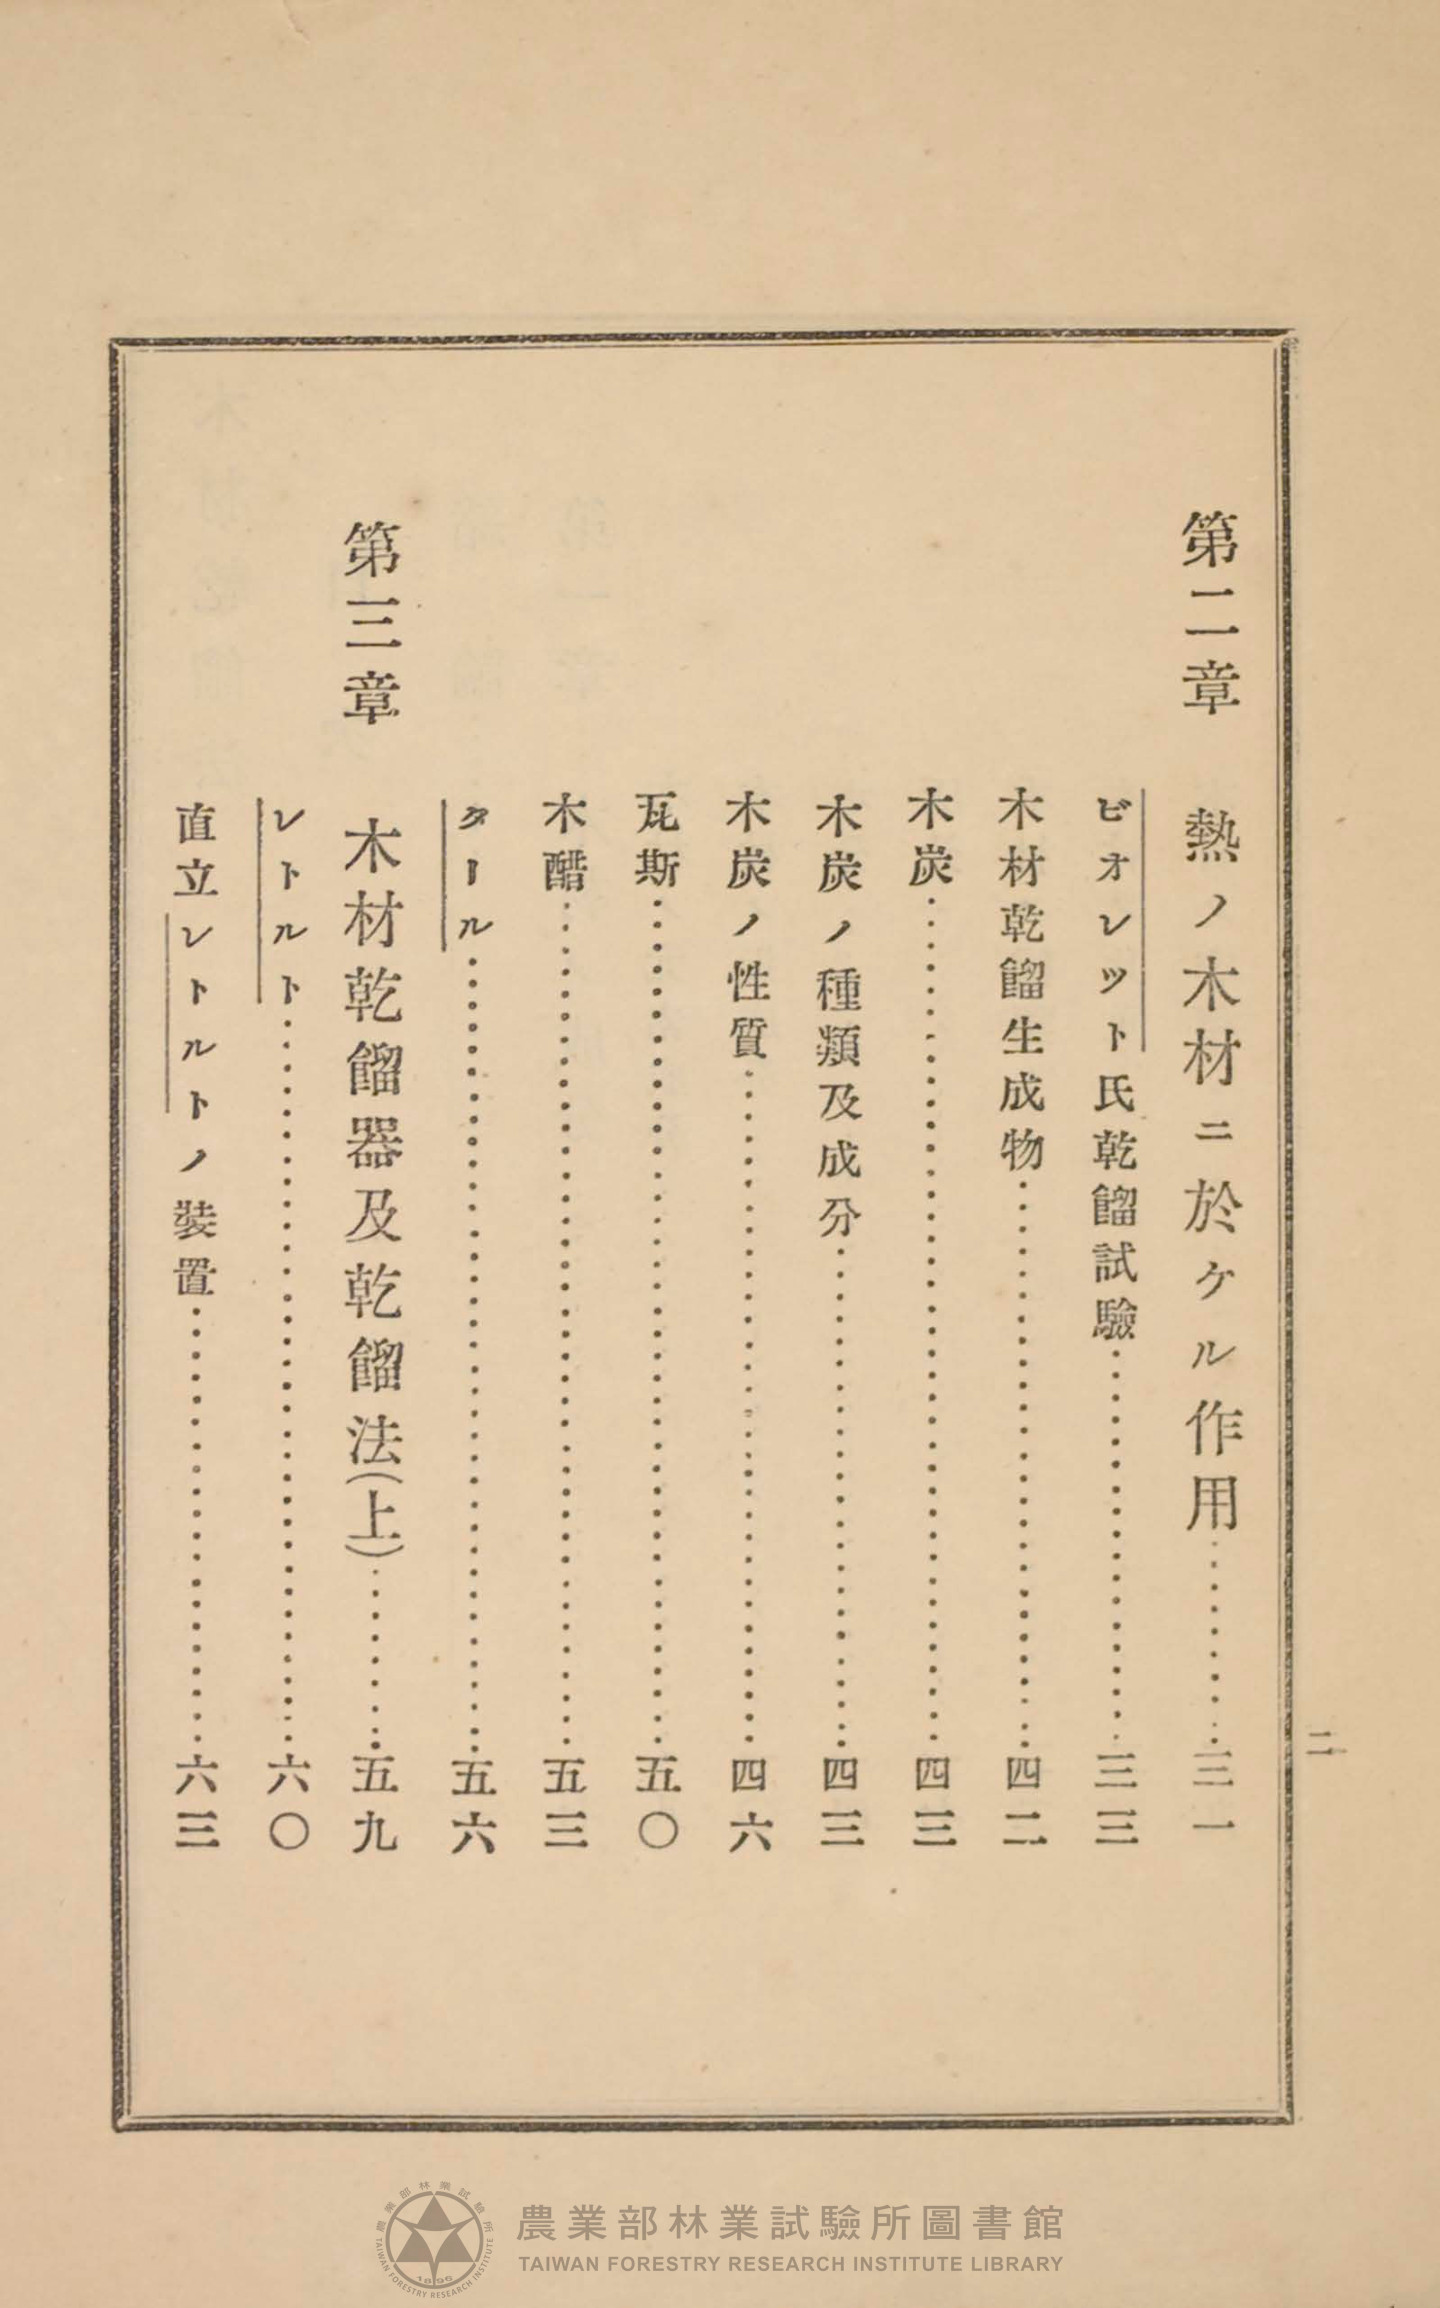 第二章　熱ノ木材ニ於ケル作用……三一
ビオレット氏乾餾試驗……三三
木材乾餾生成物……四二
木炭……四三
木炭ノ種類及成分……四三
木炭ノ性質……四六
瓦斯……五〇
木醋……五三
タール……五六
第三章　木材乾餾器及乾餾法(上)……五九
レトルト……六〇
直立レトルトノ裝置……六三
二
農業部林業試驗所圖書館
TAIWAN FORESTRY RESEARCH INSTITUTE LIBRARY
農業部林業試驗所
TAIWAN FORESTRY RESEARCH INSTITUTE
1896